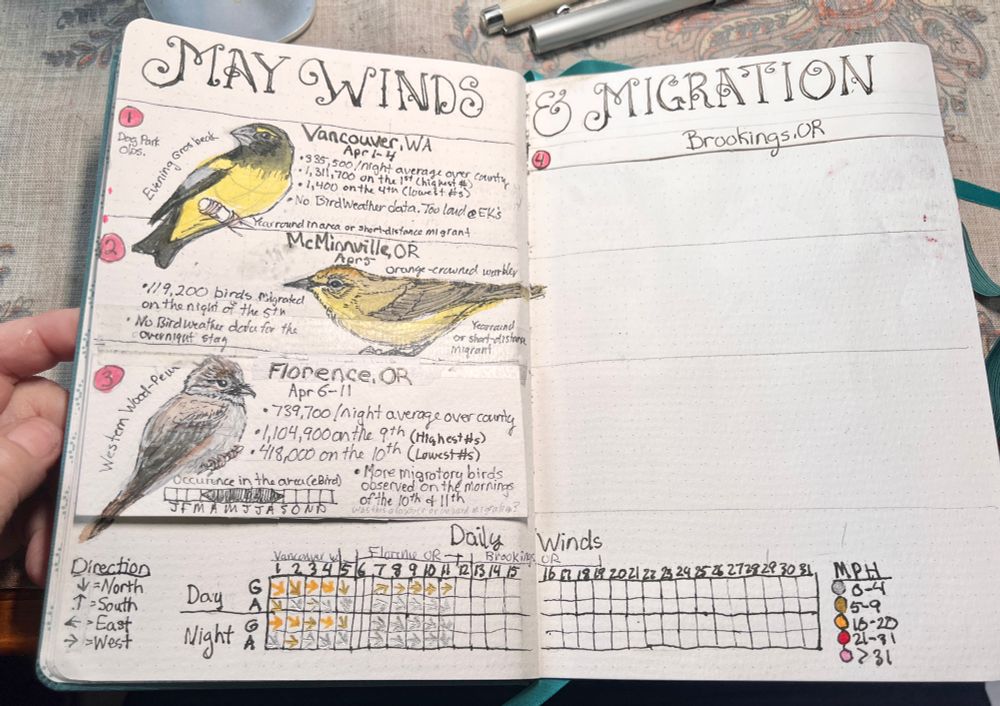 MAY WINDS
& MIGRATION
1
Dog Park
Obs.
Evening Grosbeak
Vancouver, WA
Apr 1-4
• 335,500/night average over county
• 1,311,700 on the 1st (highest #)
• 1,400 on the 4th (lowest #s)
• No BirdWeather data. Too loud @ EK's
Year round in area or short-distance migrant
2
McMinnville, OR
Apr 5
orange-crowned warbler
• 119,200 birds migrated
on the night of the 5th
• No BirdWeather data for the
overnight stay
Year round
or short-distance
migrant
3
Western Wood-Pewee
Florence, OR
Apr 6-11
• 739,700/night average over county
• 1,104,900 on the 9th (Highest #s)
• 418,000 on the 10th (Lowest #s)
• More migratory birds
observed on the mornings
of the 10th & 11th
Occurence in the area (eBird)
J F M A M J J A S O N D
Brookings, OR
4
Daily Winds
Vancouver
Florence OR →
Brookings OR
1 2 3 4 5 6 7 8 9 10 11 12 13 14 15 16 17 18 19 20 21 22 23 24 25 26 27 28 29 30 31
Day
G
A
Night
G
A
Direction
↓ = North
↑ = South
← = East
→ = West
MPH
0-4
5-9
10-20
21-31
>31